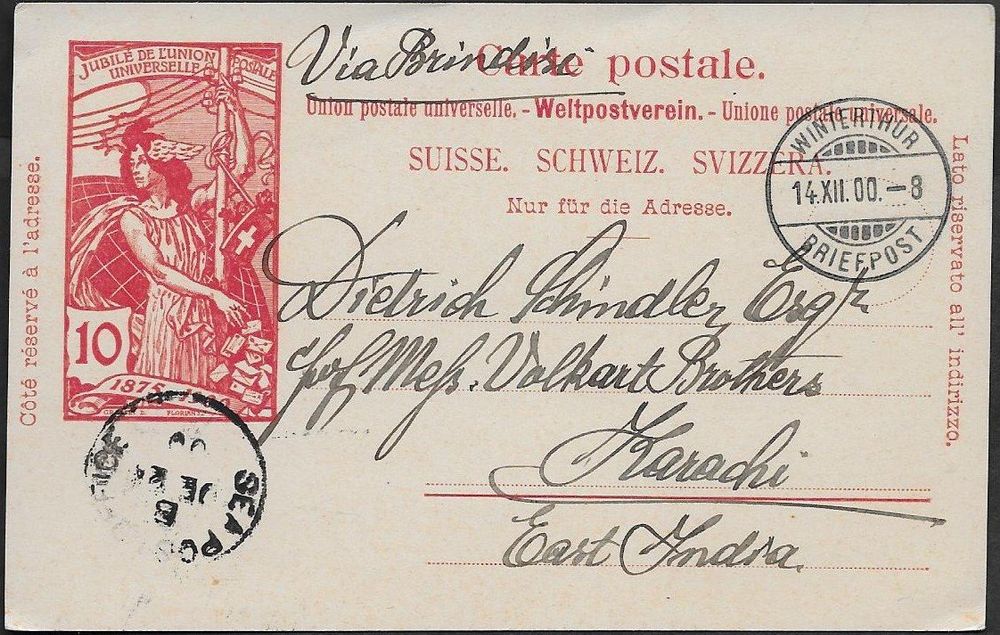 Via Brindisi
Carte postale.
Union postale universelle. - Weltpostverein. - Unione postale universale.
SUISSE. SCHWEIZ. SVIZZERA.
Nur für die Adresse.
JUBILÉ DE L'UNION
UNIVERSELLE POSTALE
10
1875
FLORIAN
Côté réservé à l'adresse.
Lato riservato all' indirizzo.
WINTERTHUR
14.XII.00.-8
BRIEFPOST
Dietrich Schindler Esqr
Meſs. Volkart Brothers
Karachi
East India
SEA POST
OFFICE
B
DE
00